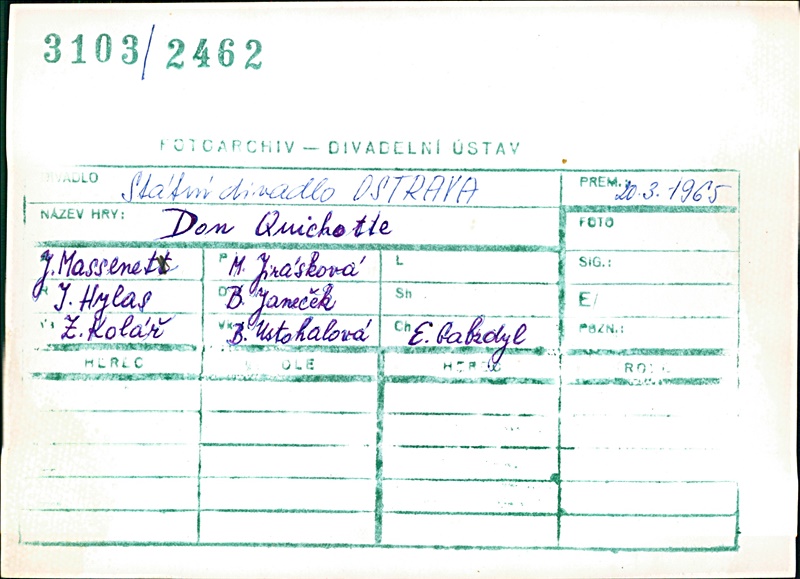 3103/2462
FOTOARCHIV — DIVADELNÍ ÚSTAV
DIVADLO Státní divadlo OSTRAVA PREM.: 20.3.1965
NÁZEV HRY: Don Quichotte FOTO
J. Massenett P M. Jirásková L SIG.:
J. Hylas B. Janeček Sh E/
Z. Kolář B. Ustohalová Ch E. Gabzdyl POZN.:
HEREC ROLE HEREC ROLE